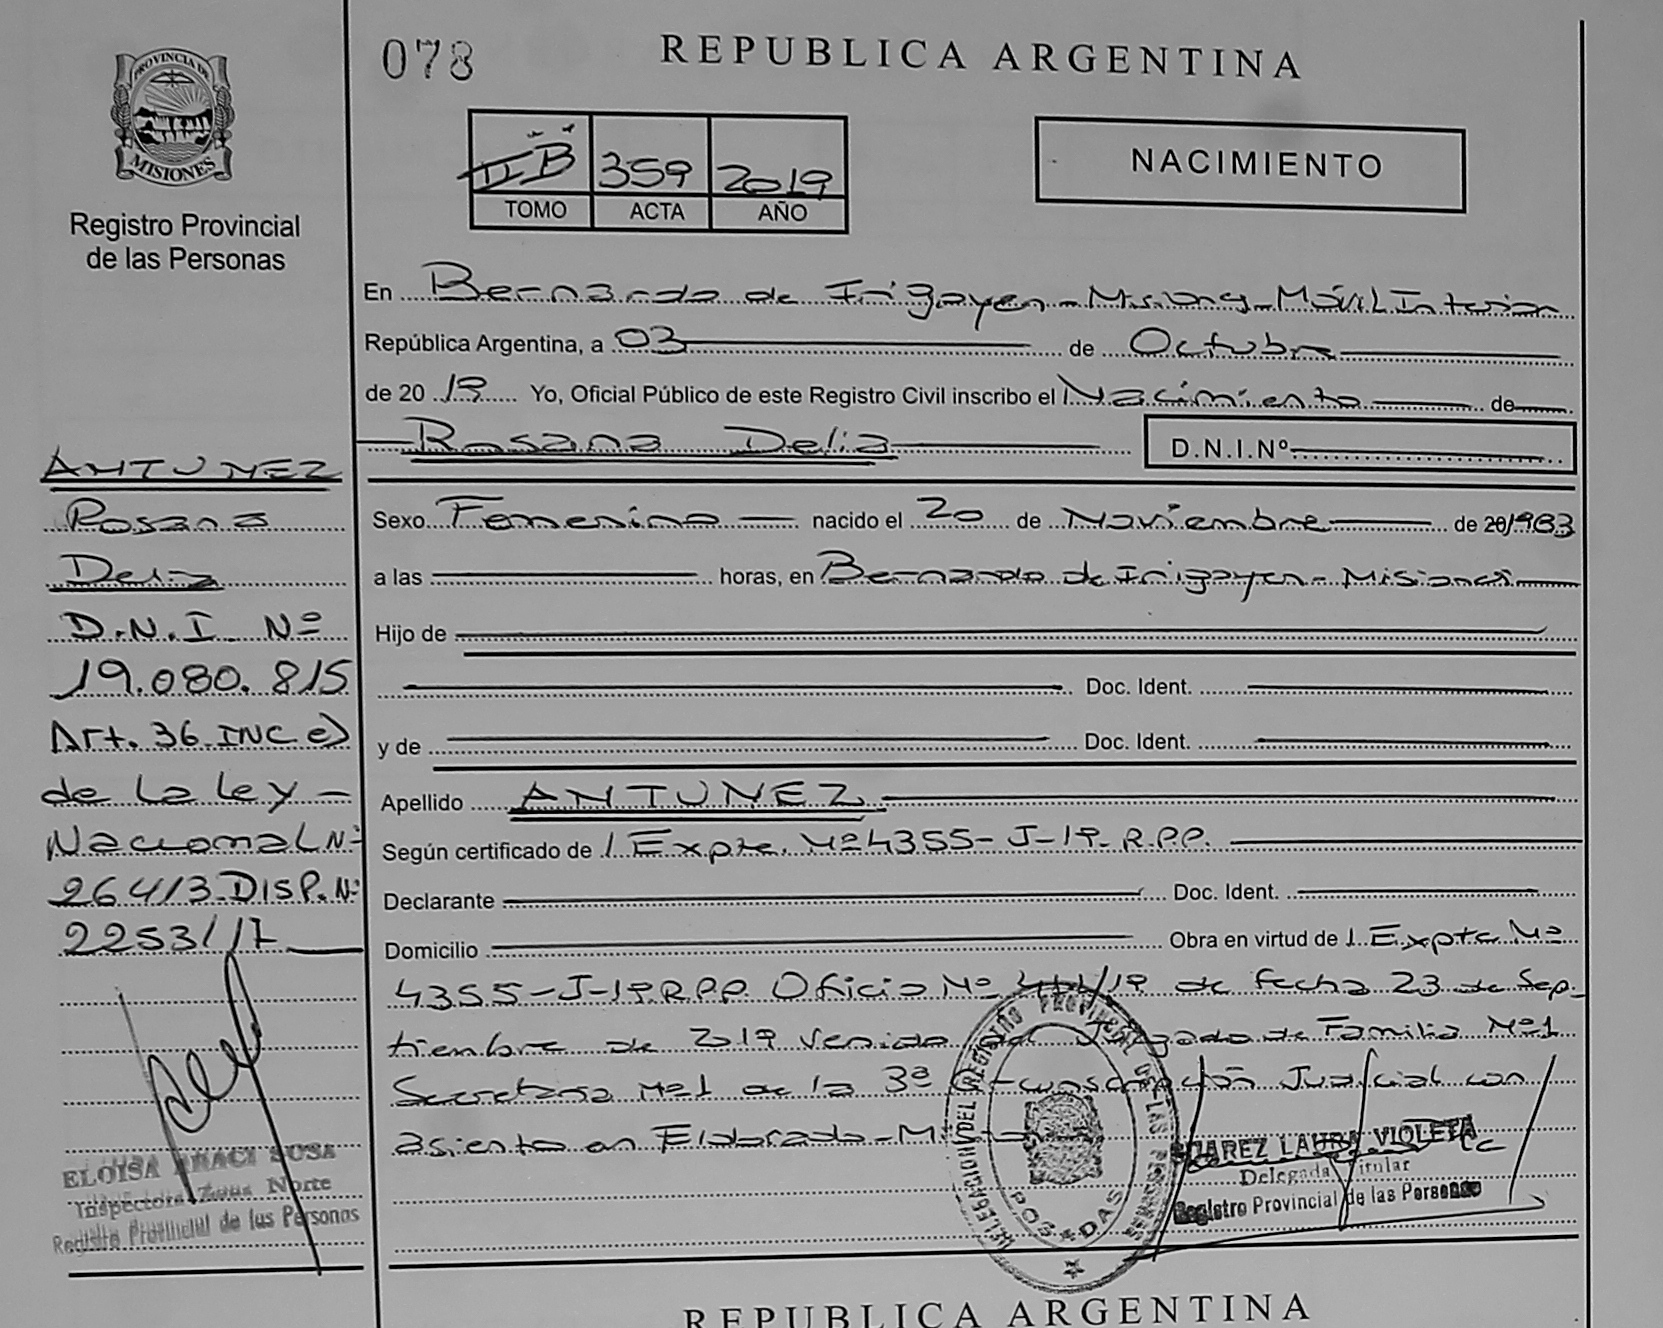 078
REPUBLICA ARGENTINA
PROVINCIA DE
MISIONES
Registro Provincial
de las Personas
II B 359 2019
TOMO ACTA AÑO
NACIMIENTO
En Bernardo de Irigoyen - Misiones - Móvil Interior
República Argentina, a 03 de Octubre
de 20 19 Yo, Oficial Público de este Registro Civil inscribo el Nacimiento de
Rosana Delia
D.N.I.Nº
Sexo Femenino nacido el 20 de Noviembre de 20 1983
a las horas, en Bernardo de Irigoyen - Misiones
Hijo de
Doc. Ident.
y de Doc. Ident.
Apellido ANTUNEZ
Según certificado de / Expte. Nº 4355-J-19-R.P.P.
Declarante Doc. Ident.
Domicilio Obra en virtud de / Expte Nº
4355-J-19 R.P.P. Oficio Nº /19 de fecha 23 de Sep-
tiembre de 2019 venido del Juzgado de Familia Nº1
Secretaria Nº1 de la 3ª Circunscripción Judicial con
asiento en Eldorado-
ANTUNEZ
Rosana
Delia
D.N.I Nº
19.080.815
Art. 36 INC e)
de La Ley -
Nacional Nº
26413 DISP. Nº
2253/17
ELOISA ARACI SOSA
Inspectora Zona Norte
Registro Provincial de las Personas
DELEGACION DEL REGISTRO PROVINCIAL DE LAS PERSONAS
POSADAS
SUAREZ LAURA VIOLETA
Delegada Titular
Registro Provincial de las Personas
REPUBLICA ARGENTINA